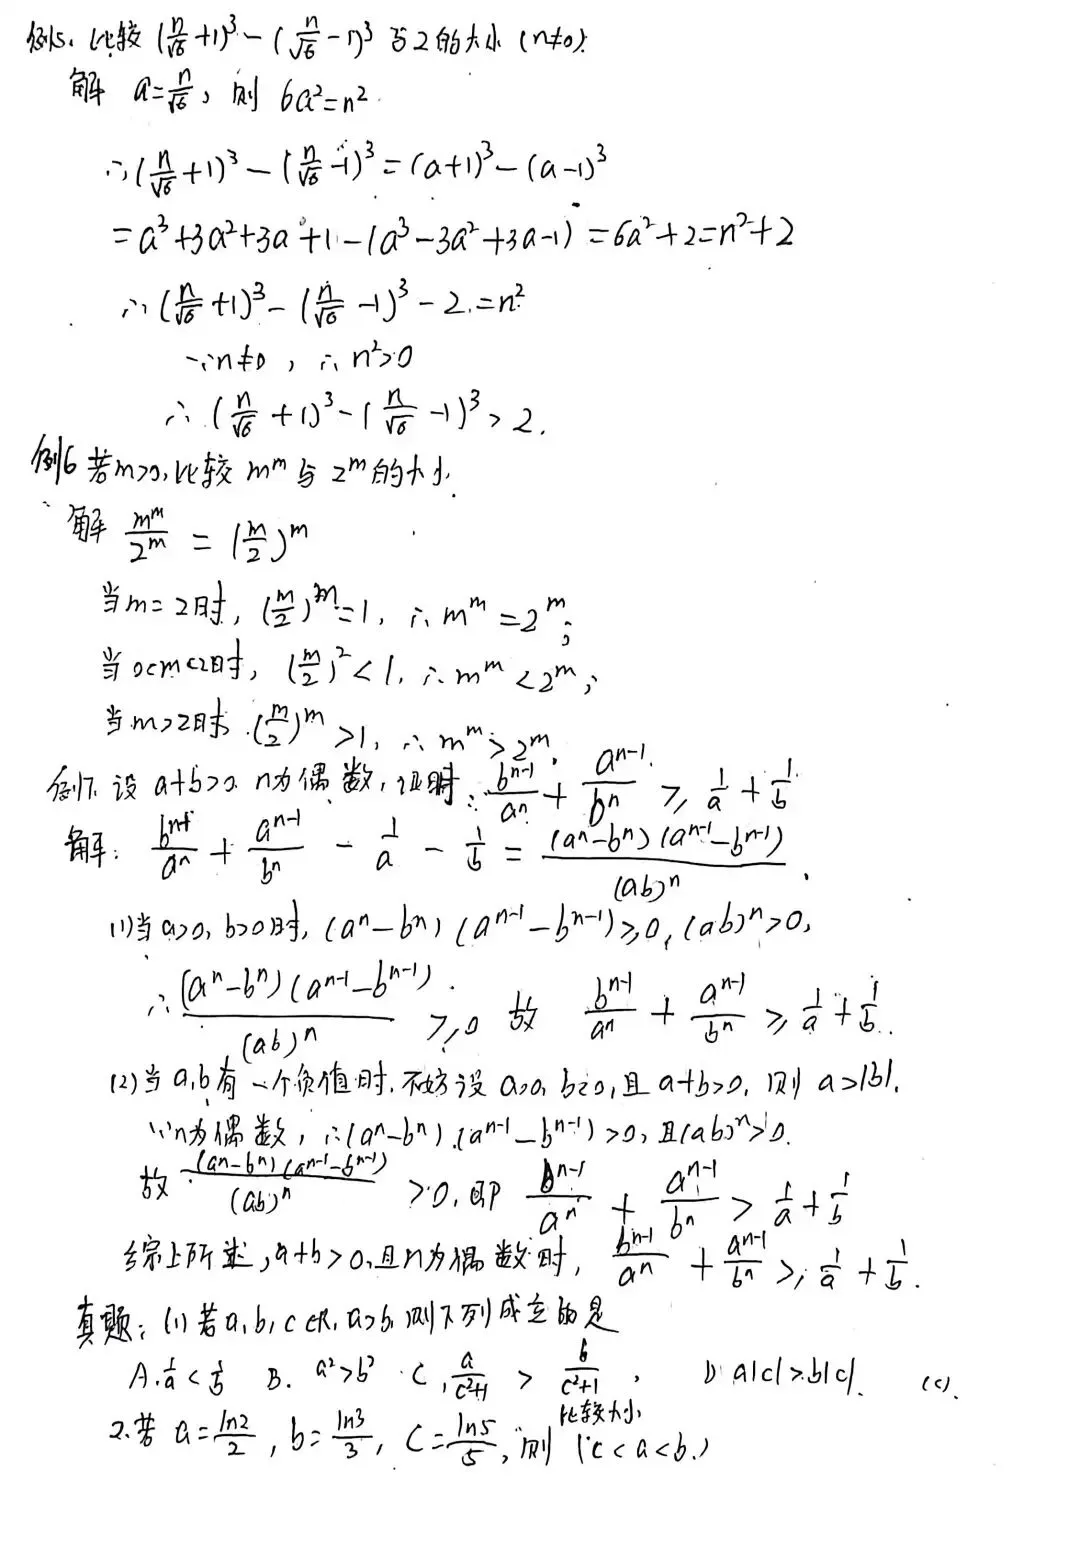 例5. 比较 (n/√6+1)³-(n/√6-1)³ 与2的大小 (n≠0).
解 a=n/√6, 则 6a²=n².
∴(n/√6+1)³-(n/√6-1)³=(a+1)³-(a-1)³
=a³+3a²+3a+1-(a³-3a²+3a-1)=6a²+2=n²+2
∴(n/√6+1)³-(n/√6-1)³-2=n²
∵n≠0, ∴n²>0
∴(n/√6+1)³-(n/√6-1)³>2.
例6 若m>0,比较 mᵐ与2ᵐ的大小.
解 mᵐ/2ᵐ=(m/2)ᵐ
当m=2时, (m/2)ᵐ=1, ∴mᵐ=2ᵐ;
当0<m<2时, (m/2)²<1, ∴mᵐ<2ᵐ;
当m>2时, (m/2)ᵐ>1, ∴mᵐ>2ᵐ.
例7. 设a+b>0. n为偶数, 证明: bⁿ⁻¹/aⁿ+aⁿ⁻¹/bⁿ≥1/a+1/b
解: bⁿ⁻¹/aⁿ+aⁿ⁻¹/bⁿ-1/a-1/b=(aⁿ-bⁿ)(aⁿ⁻¹-bⁿ⁻¹)/(ab)ⁿ.
(1)当a>0, b>0时, (aⁿ-bⁿ)(aⁿ⁻¹-bⁿ⁻¹)≥0, (ab)ⁿ>0,
∴(aⁿ-bⁿ)(aⁿ⁻¹-bⁿ⁻¹)/(ab)ⁿ≥0 故 bⁿ⁻¹/aⁿ+aⁿ⁻¹/bⁿ≥1/a+1/b.
(2)当a,b有一个负值时.不妨设a>0, b<0,且a+b>0, 则a>|b|.
∵n为偶数, ∴(aⁿ-bⁿ).(aⁿ⁻¹-bⁿ⁻¹)>0,且(ab)ⁿ>0.
故 (aⁿ-bⁿ)(aⁿ⁻¹-bⁿ⁻¹)/(ab)ⁿ>0.即 bⁿ⁻¹/aⁿ+aⁿ⁻¹/bⁿ>1/a+1/b
综上所述,a+b>0,且n为偶数时, bⁿ⁻¹/aⁿ+aⁿ⁻¹/bⁿ≥1/a+1/b.
真题: (1)若a,b,c∈R, a>b,则下列成立的是
A.1/a<1/b B. a²>b² C.a/(c²+1)>b/(c²+1), D a|c|>b|c|. (C).
比较大小
2.若 a=ln2/2, b=ln3/3, C=ln5/5, 则 (c<a<b.)